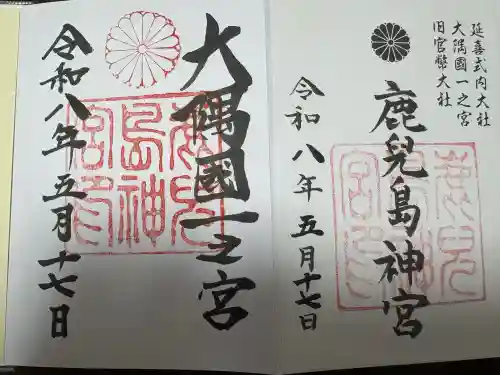 延喜式内大社
大隅國一之宮
旧官幣大社
鹿兒島神宮
令和八年五月十七日
大隅國一之宮
令和八年五月十七日
鹿兒
島神
宮印
鹿兒
島神
宮印